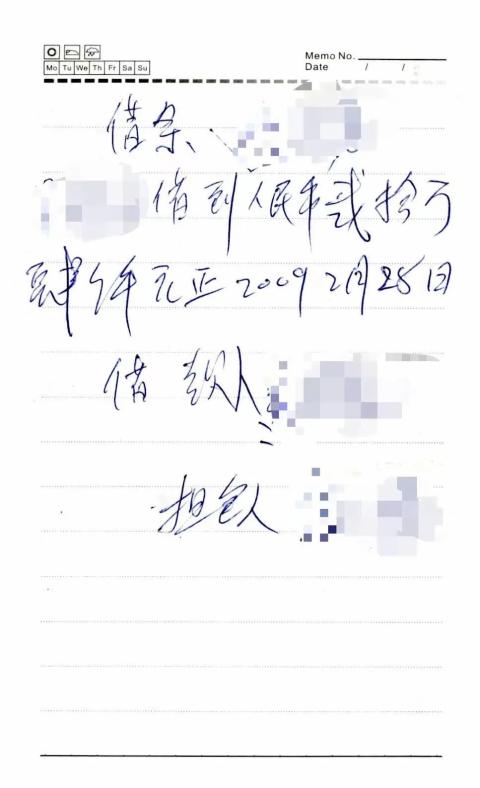 Memo No.
Mo Tu We Th Fr Sa Su
Date / /
借条
借到人民币贰拾万
肆仟元正2009 2月28日
借款人
担包人